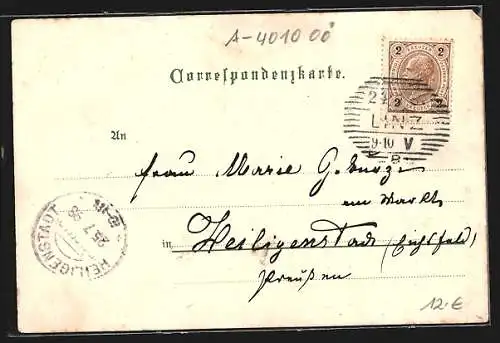 A-4010 00
Correspondenzkarte.
2 2
2 2
LINZ
9-10 V
An
Frau Marie
am Markt
in Heiligenstadt (Eichsfeld)
Preußen
HEILIGENSTADT
25 7 98
12.€